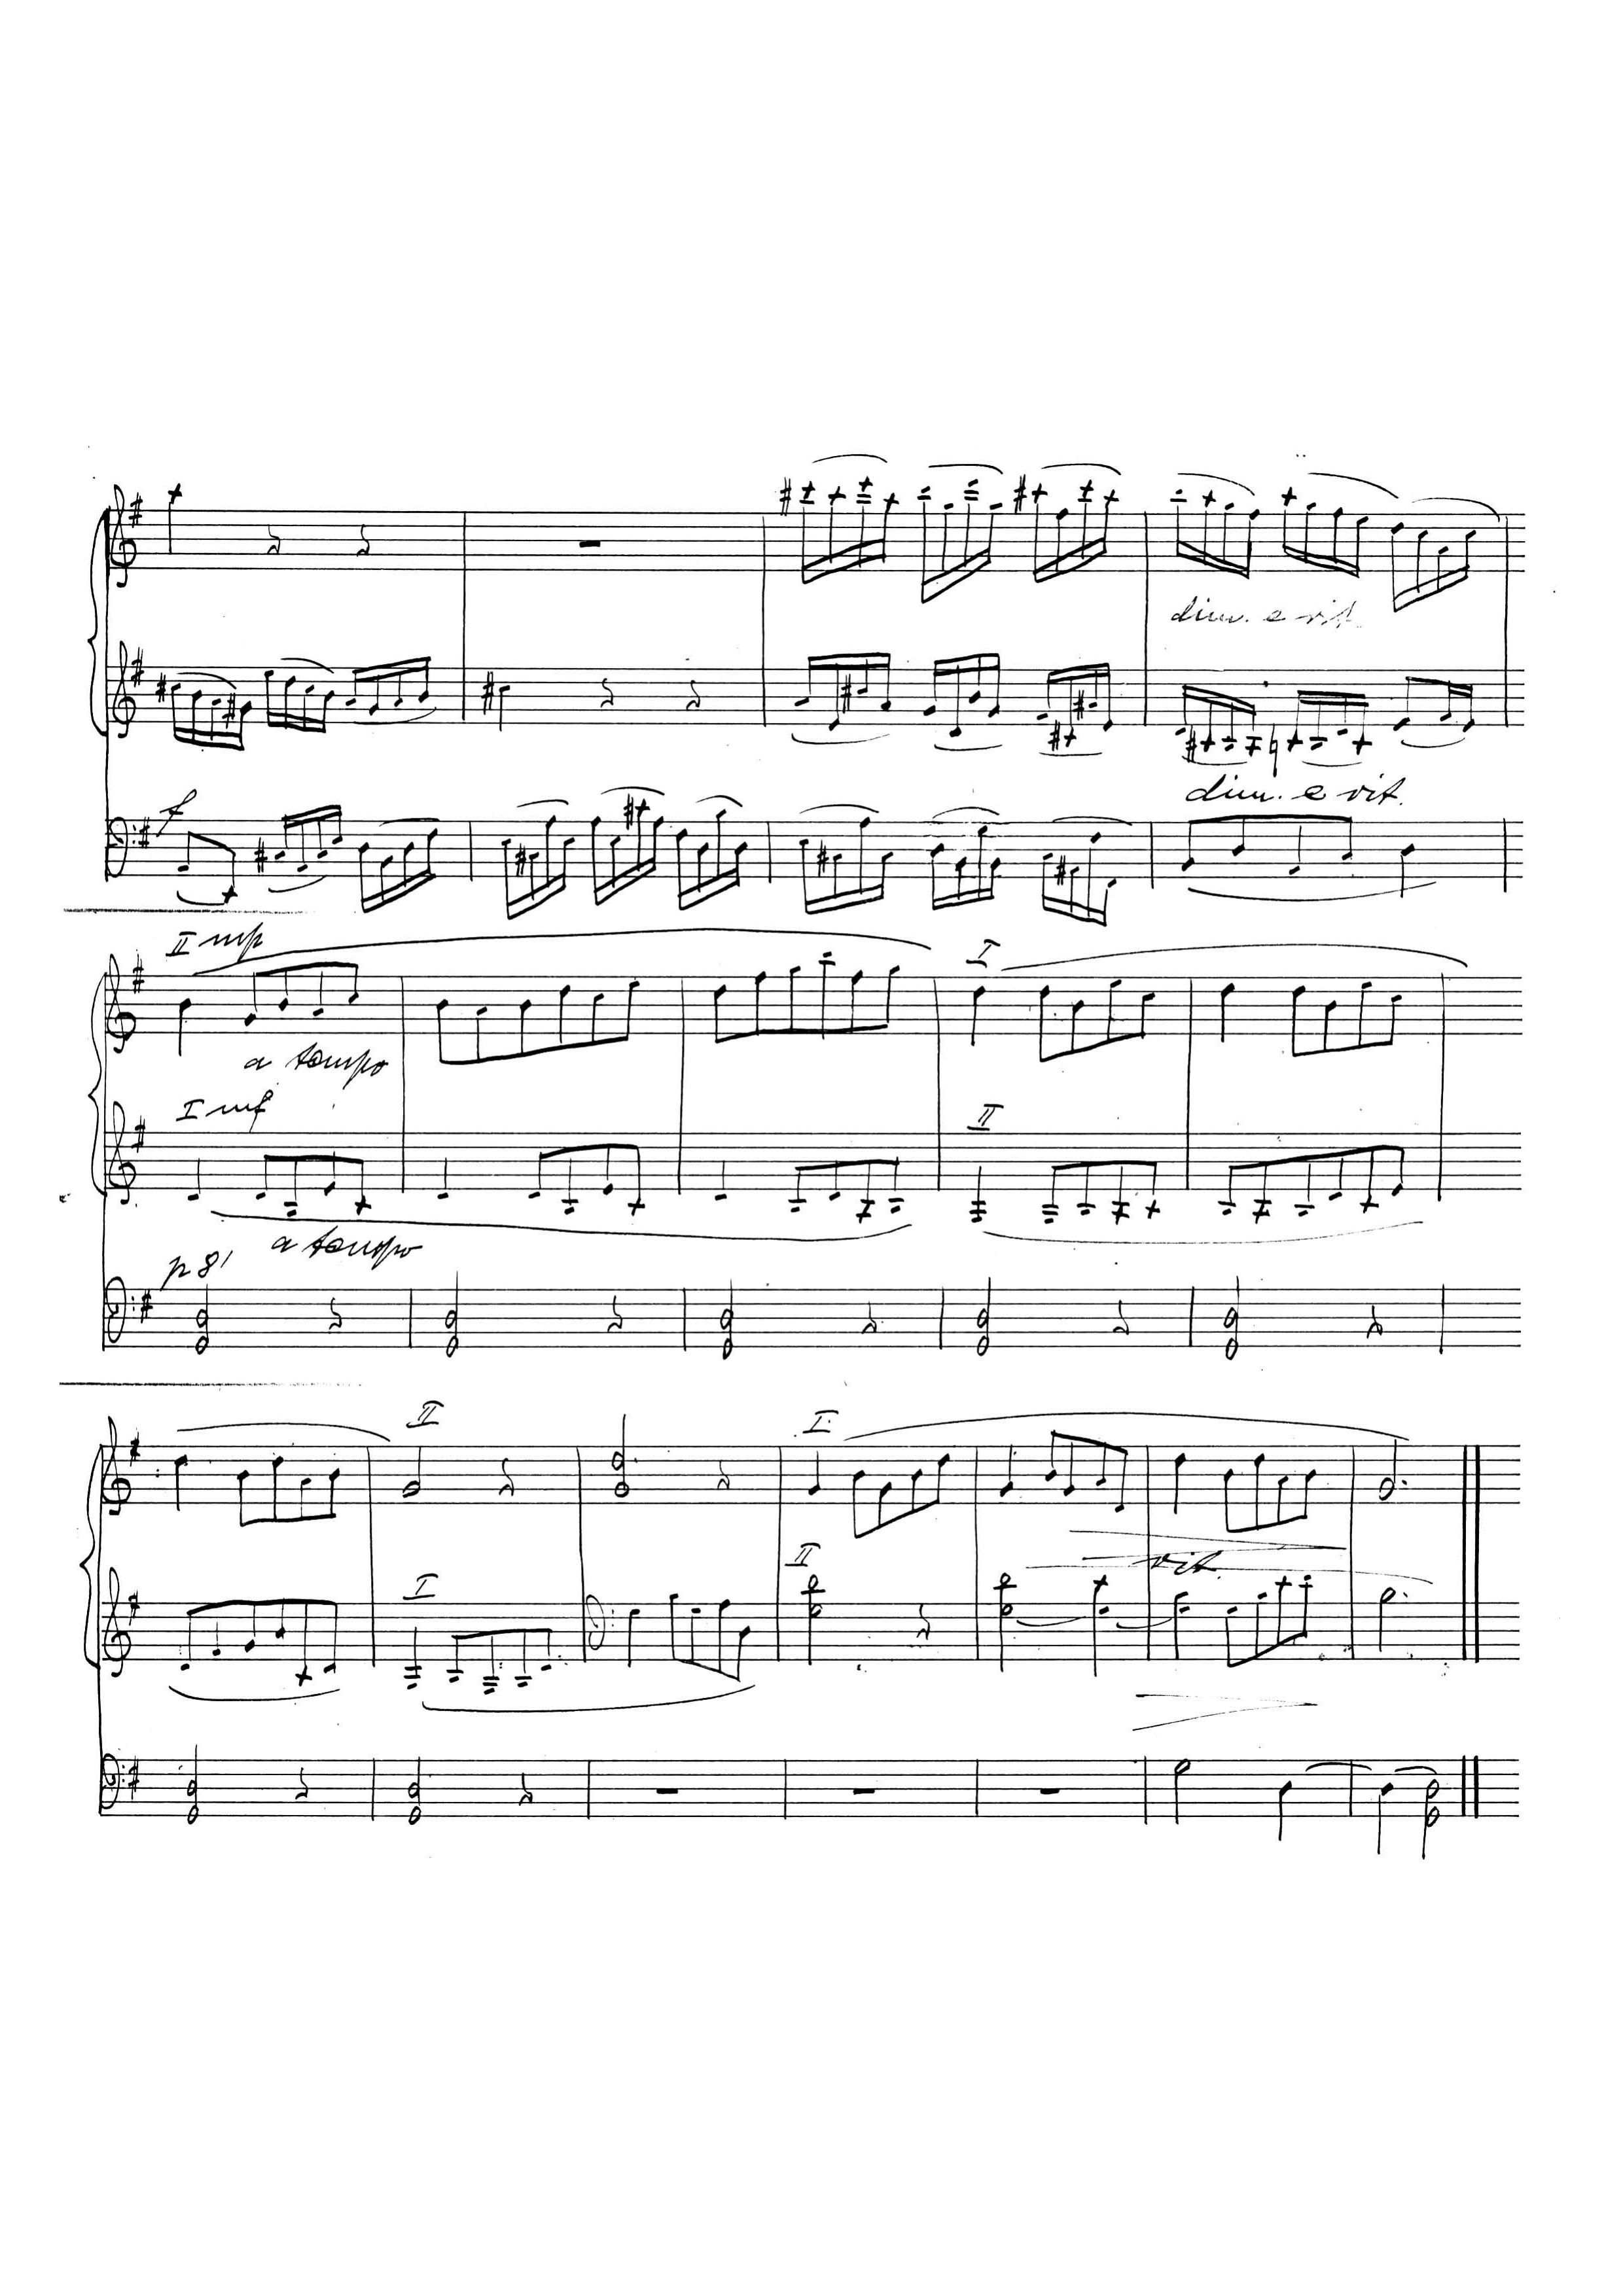 dim. e rit.
f
dim. e rit.
II mp
I
a tempo
I mf
II
a tempo
p 8'
II
I
I
II
rit.